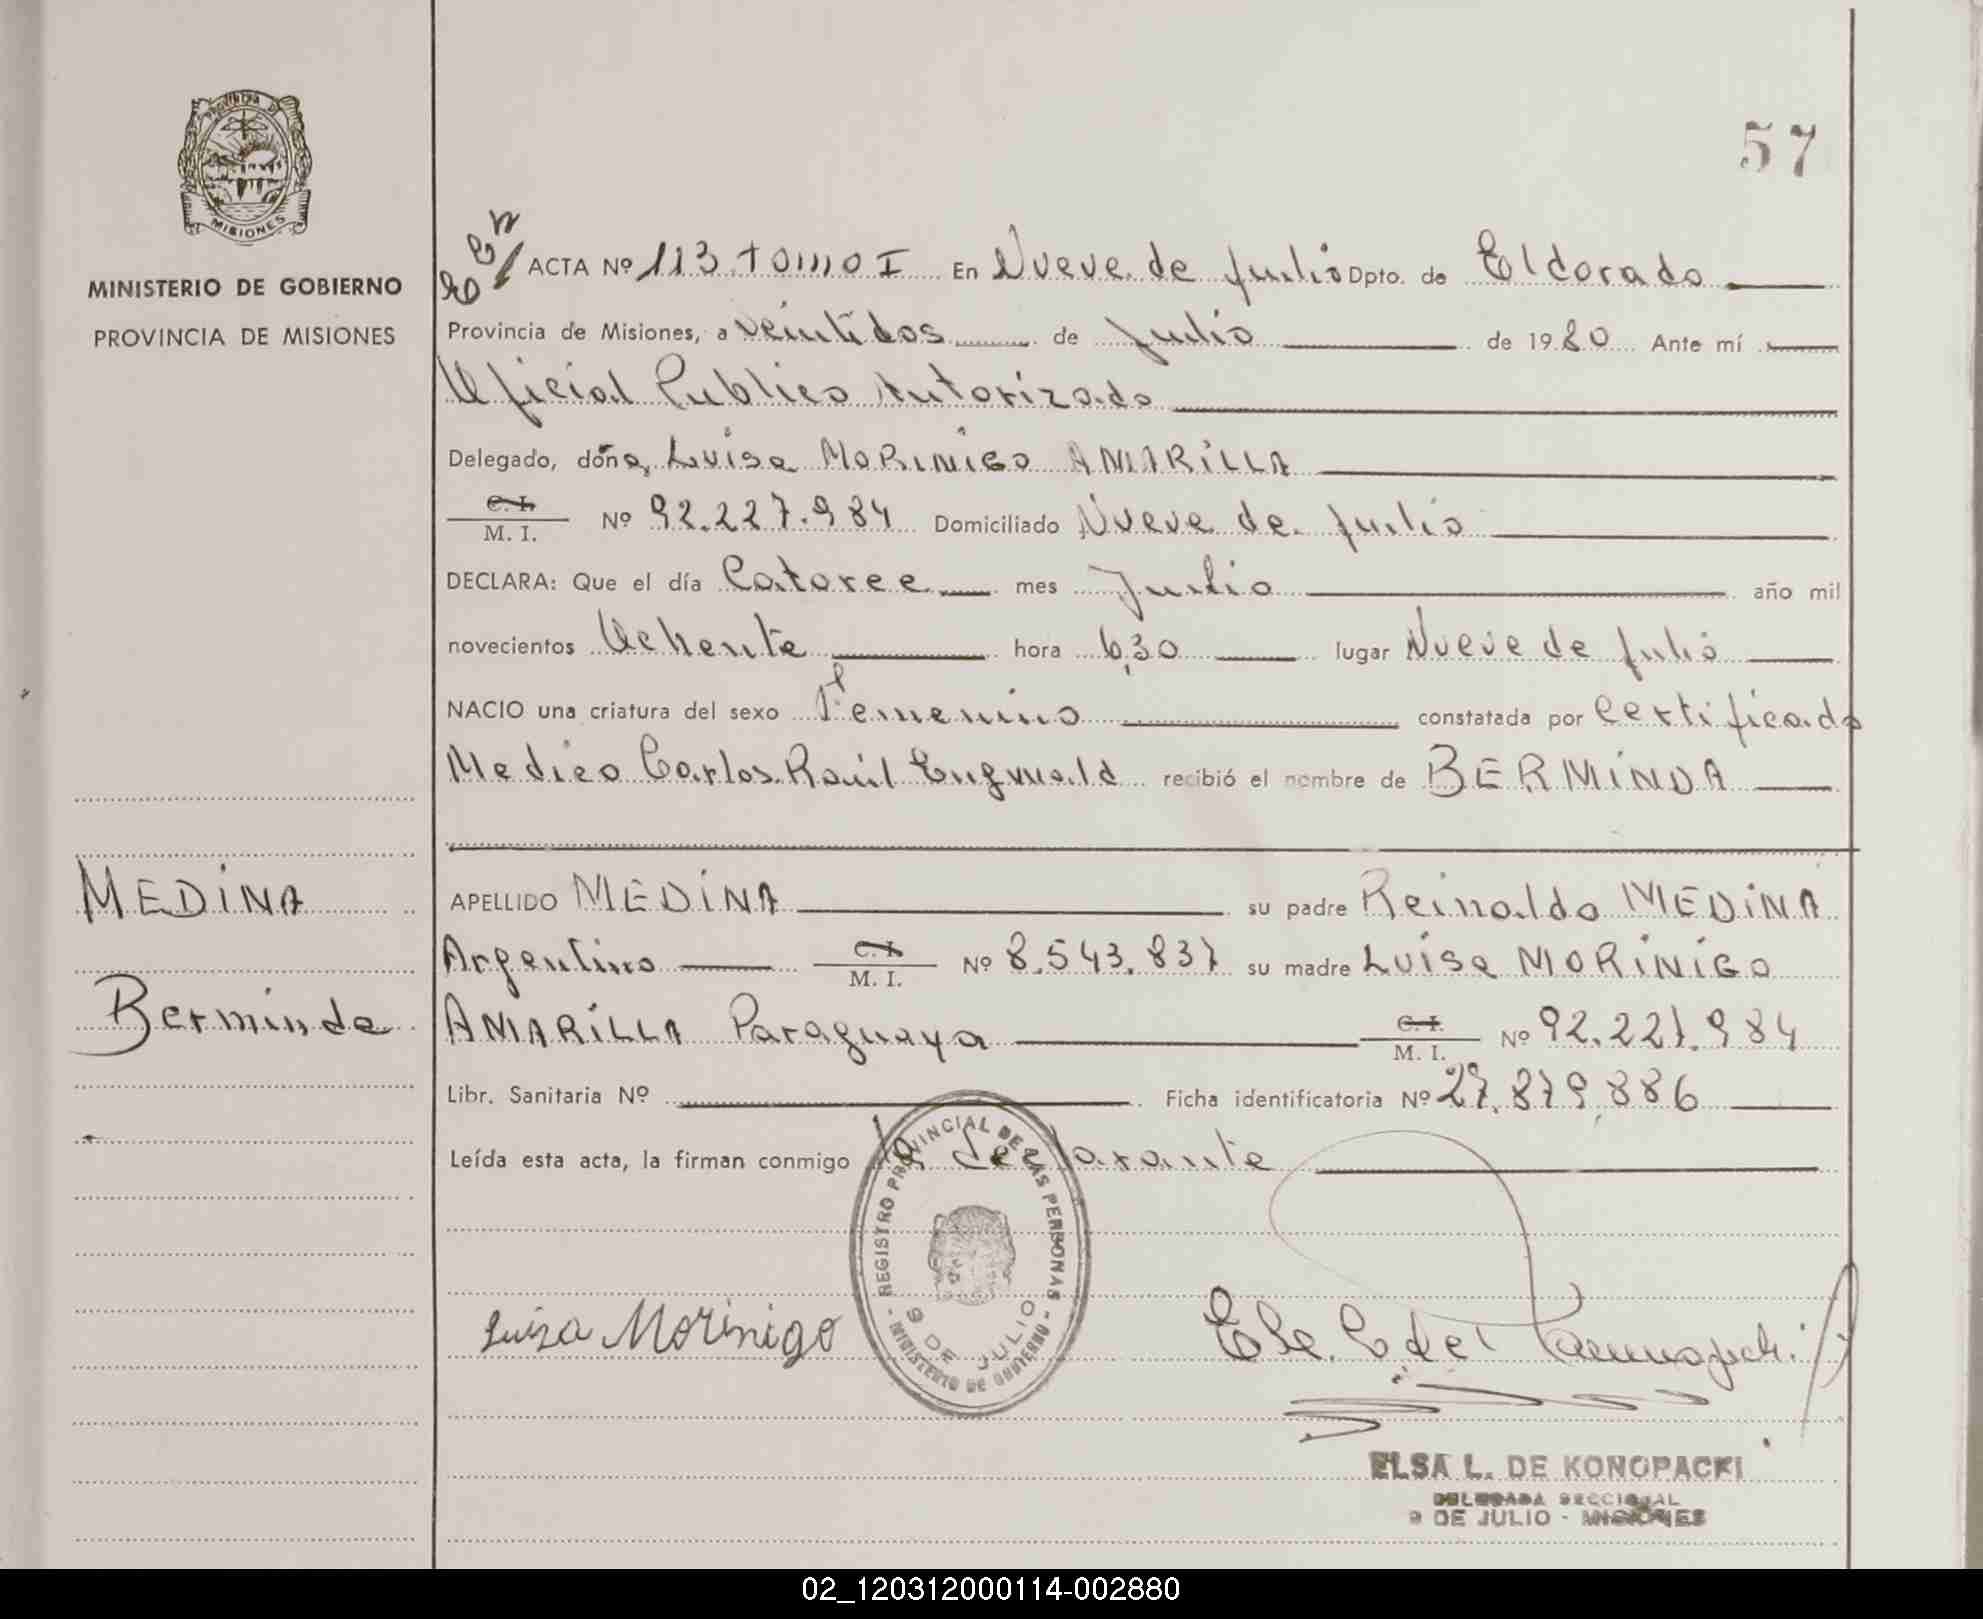 57
PROVINCIA DE
MISIONES
MINISTERIO DE GOBIERNO
PROVINCIA DE MISIONES
ACTA Nº 113 tomo I En Nueve de Julio Dpto. de Eldorado
Provincia de Misiones, a veintidos de Julio de 1980 Ante mí
Oficial Publico Autorizado
Delegado, doña Luisa MORINIGO AMARILLA
C. I.
M. I. Nº 92.227.984 Domiciliado Nueve de Julio
DECLARA: Que el día Catorce mes Julio año mil
novecientos Ochenta hora 6,30 lugar Nueve de Julio
NACIO una criatura del sexo Femenino constatada por Certificado
Medico Carlos Raúl recibió el nombre de BERMINDA
MEDINA
Berminda
APELLIDO MEDINA su padre Reinaldo MEDINA
Argentino C. I. M. I. Nº 8.543.837 su madre Luisa MORINIGO
AMARILLA Paraguaya C. I. M. I. Nº 92.227.984
Libr. Sanitaria Nº Ficha identificatoria Nº 27.879.886
Leída esta acta, la firman conmigo la declarante
REGISTRO PROVINCIAL DE LAS PERSONAS
9 DE JULIO
MINISTERIO DE GOBIERNO
Luisa Morinigo
ELSA L. DE KONOPACKI
DELEGADA SECCIONAL
9 DE JULIO - MISIONES
02_120312000114-002880